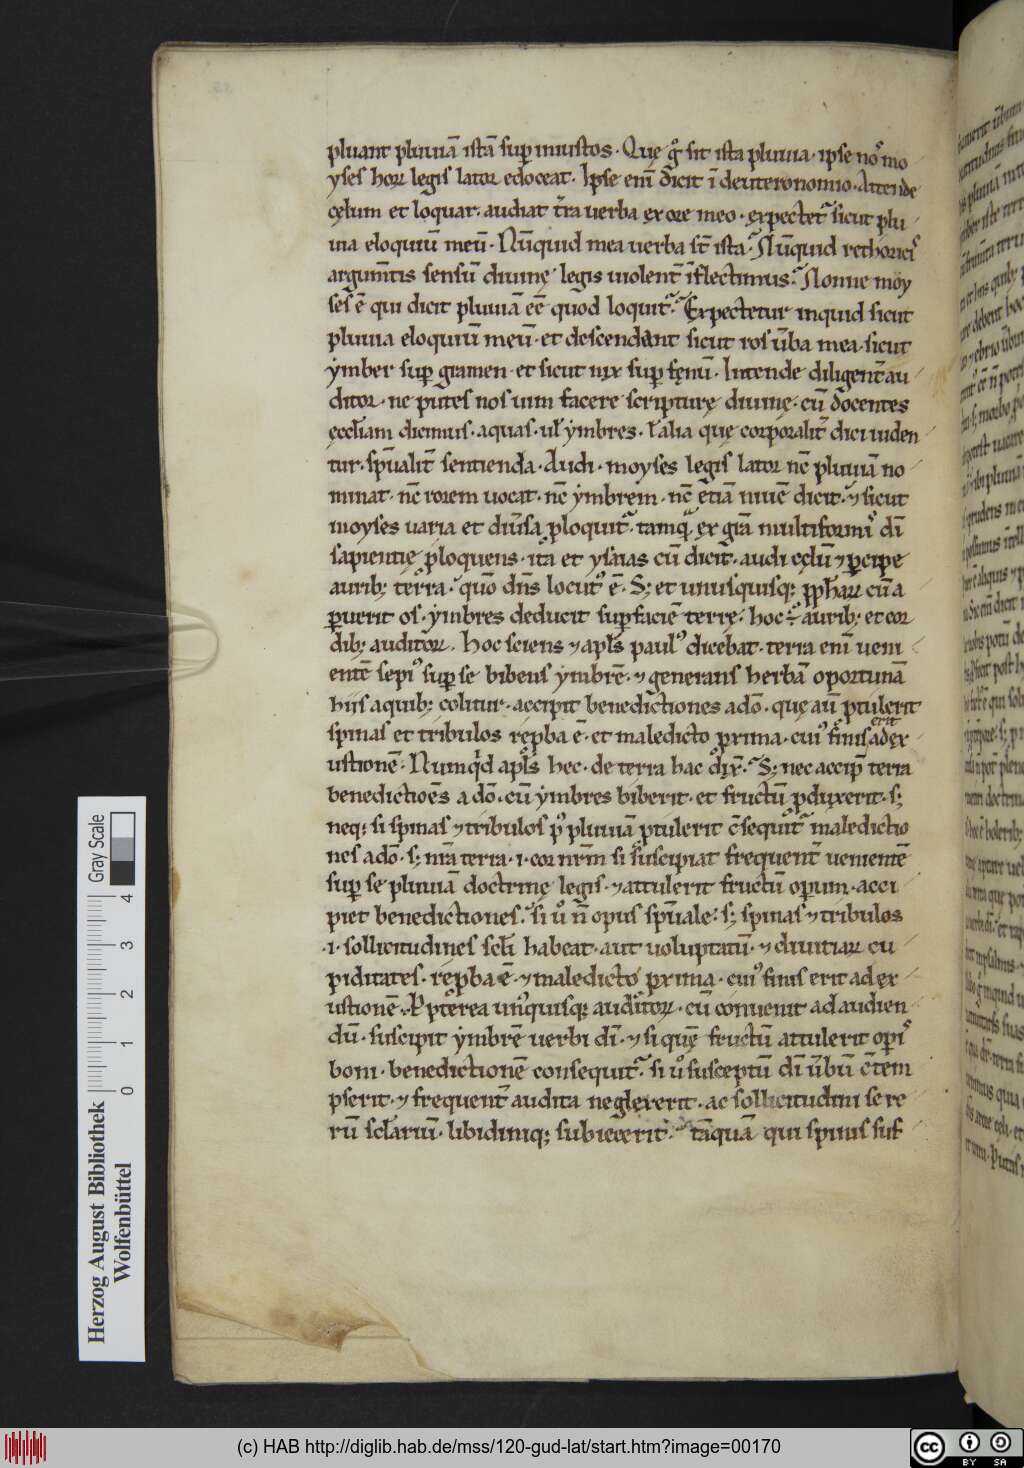 pluant pluuiā istā sup iniustos. Que g̊ sit ista pluuia. ipse nos mo
yses hoꝝ legis lator edoceat. Ipse enī dicit ī deuteronomio. Attende
cęlum et loquar. audiat tr̄a uerba ex ore meo. expectet̄ sicut plu
uia eloquiū meū. Nūnquid mea uerba st̄ ista. Nūnquid rethoricis
argum̄tis sensū diuinę legis uiolent̄ īflectimus. Nonne moy
ses ē qui dicit pluuiā eē quod loquit̄. Expectetur inquid sicut
pluuia eloquiū meū. et descendant sicut ros ūba mea. sicut
ẏmber sup gramen. et sicut nix sup fęnū. Intende diligent̄ au
ditor. ne putes nos uim facere scripturę diuinę. cū docentes
ęccl̄iam dicimus. aquas. ul̄ ẏmbres. l̄ alia quę corporalit̄ dici uiden
tur. spūalit̄ sentienda. Audi. moyses legis lator nc̄ pluuiā no
minat. nc̄ rorem uocat. nc̄ ẏmbrem. nc̄ etiā niuē dicit. ⁊ sicut
moyses uaria et diūsa ploquit̄. tamq̄ ex grā multiformis dī
sapientię ploquens. ita et ysaias cū dicit. audi cęlū ⁊ pcipe
aurib; terra. quō dn̄s locut᾽ ē. S; et unusquisq; pph̄aꝝ cū a
puerit os. ẏmbres deducit sup faciē terrę. hoc ÷ aurib; et cor
dib; auditoꝝ. Hoc sciens ⁊ apl̄s paul᾽ dicebat. terra enī ueni
entē sepi᾽ sup se bibens ẏmbrē. ⁊ generans herbā oportunā
hiis a quib; colitur. accipit benedictiones a dō. quę aū ptulerit
spinas et tribulos repba ē. et maledicto prima. cui᾽ finis erit ad ex
ustionē. Numq̄d apl̄s hec. de terra hac dix̄. S; nec accip̄ terra
benedictiōes a dō. cū ẏmbres biberit. et fructū pduxerit. s;
neq; si spinas ⁊ tribulos p᾽ pluuiā ptulerit c̄sequit̄ maledictio
nes a dō. s; nr̄a terra. i. cor nrm̄ si suscipiat frequent̄ uenientē
sup se pluuiā doctrinę legis. ⁊ attulerit fructū operum. acci
piet benedictiones. si ů n̄ opus spūale. s; spinas ⁊ tribulos
.i. sollicitudines scl̄i habeat. aut uoluptatū. ⁊ diuitiaꝝ cu
piditates. repba ē. ⁊ maledicto prima. cui᾽ finis erit ad ex
ustionē. Ppterea un᾽quisq; auditoꝝ. cū conuenit ad audien
dū. suscipit ẏmbrē uerbi dī. ⁊ si quę fructū attulerit opis
boni. benedictionē consequit̄. si ů susceptū dī ūbū c̄tem
pserit. ⁊ frequent̄ audita neglexerit. ac sollicitudini se re
rū scl̄ariū. libidiniq; subiecerit. tāquā qui spinis suf
Herzog August Bibliothek
Wolfenbüttel
Gray Scale
0 1 2 3 4
(c) HAB http://diglib.hab.de/mss/120-gud-lat/start.htm?image=00170
cc BY SA